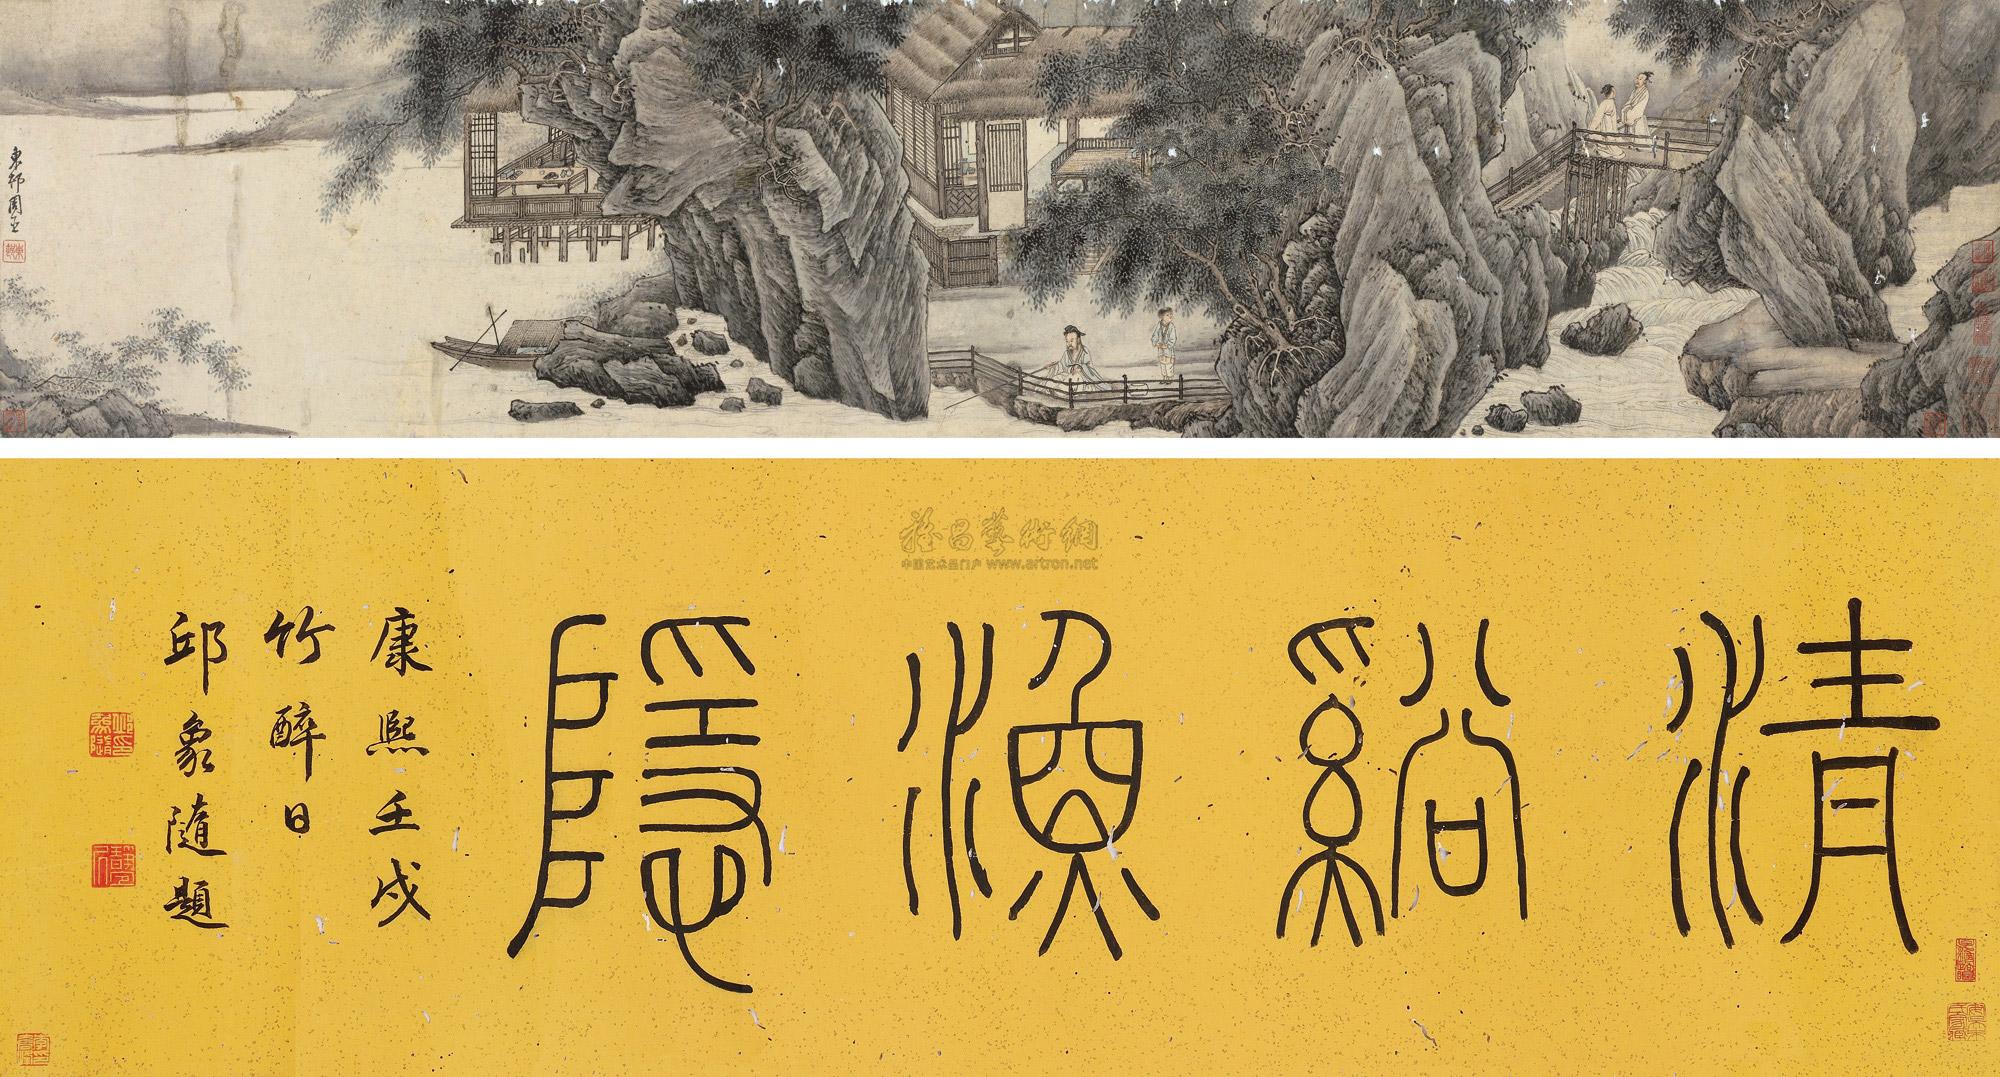 東邨周臣
雅昌藝術網
中国艺术品门户 www.artron.net
清谿漁隱
康熙壬戌
竹醉日
邱象隨題